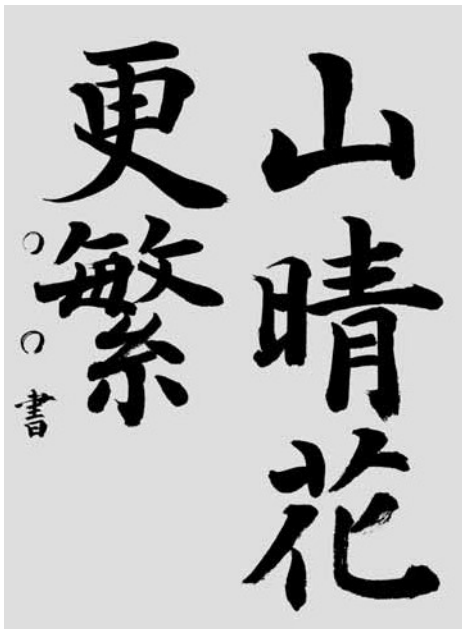 山晴花
更繁
○○書